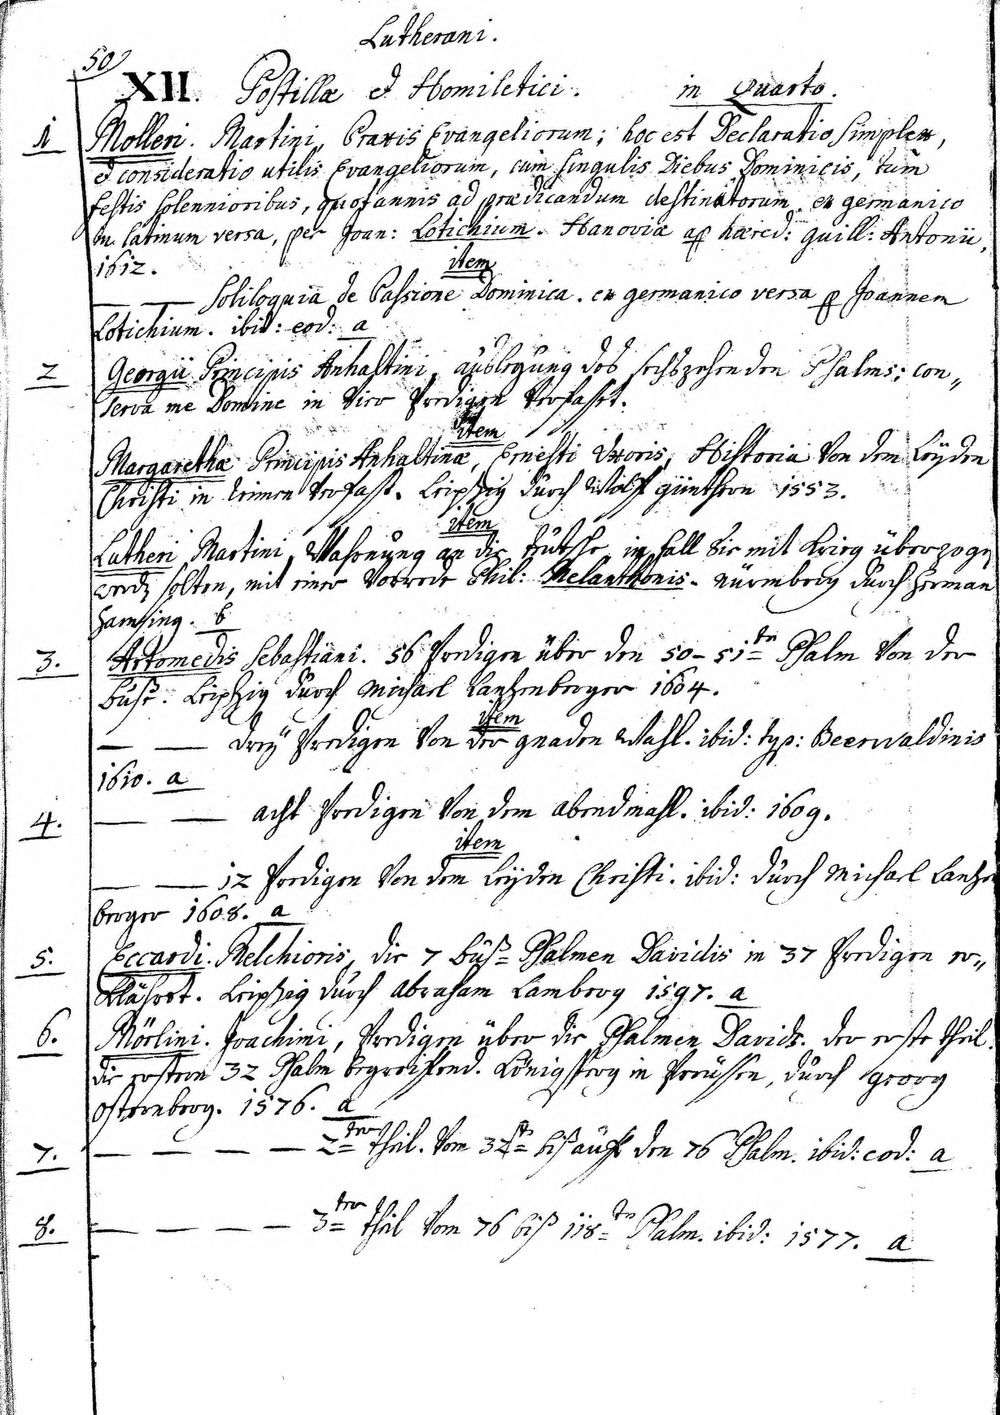 Lutherani.
50
XII. Postillæ et Homiletici. in Quarto.
1 Molleri. Martini, Praxis Evangeliorum; hoc est Declaratio simplex,
et consideratio utilis Evangeliorum, cùm singulis Diebus Dominicis, tùm
festis solennioribus, quotannis ad prædicandum destinatorum. ex germanico
in latinum versa, per Joan: Lotichium. Hanoviæ ap hæred: guill: Antonii,
1612.
item
— — Soliloquia de Passione Dominica. ex germanico versa p Joannem
Lotichium. ibid: eod: a
2 Georgii Principis Anhaltini, auslegung des sechszehenden Psalms; con„
serva me Domine in vier Predigen verfasst.
item
Margarethæ Principis Anhaltinæ, Ernesti Uxoris, Historia von dem Leyden
Christi in reimen verfasst. Leipzig durch Wolff günthern 1553.
item
Lutheri Martini, Warnung an die teutsche in fall Sie mit Krieg überzogen
werdn solten, mit einer Vorrede Phil: Melanthonis. nürmberg durch Herman
hamsing. b
3. Artomedis Sebastiani. 56 Predigen über den 50-51tn Psalm von der
buss. Leipzig durch Michael Lantzenberger 1604.
item
— — drey Predigen von der gnaden Wahl. ibid: typ: Beerwaldinis
1610. a
4. — — acht Predigen von dem abendmahl. ibid: 1609.
item
— — 12 Predigen von dem Leyden Christi. ibid: durch Michael Lantzen
berger 1608. a
5. Eccardi. Melchioris, die 7 buß= Psalmen Davidis in 37 Predigen er„
klährt. Leipzig durch abraham Lamberg 1597. a
6. Mörlini. Joachimi, Predigen über die Psalmen Davids. der erste theil.
die erstern 32 Psalm begreiffend. Königsberg in Preüssen, durch georg
osternberg. 1576. a
7. — — — — 2ter theil. vom 32st= biß auff den 76 Psalm. ibid: eod: a
8. — — — — 3ter theil vom 76 biß 118tn Psalm. ibid: 1577. a